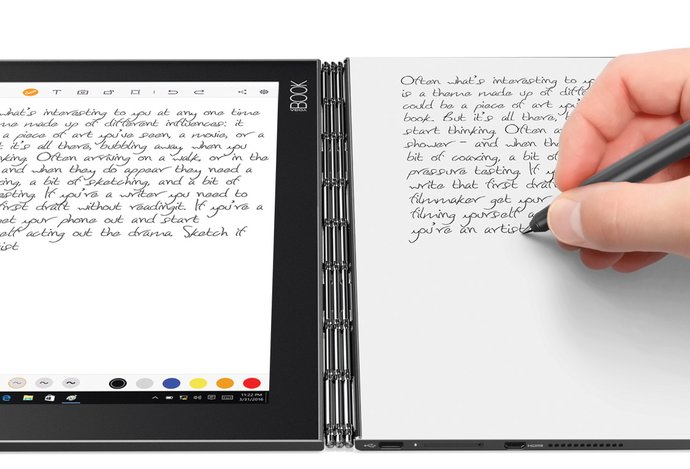 YOGA BOOK
what's interesting to you at any one time
me made up of different influences: it
a piece of art you've seen, a movie, or a
it's all there, bubbling away when you
king. Often arriving on a walk, or in the
and when they do appear they need a
ing, a bit of sketching, and a bit of
esting. If you're a writer you need to
first draft without readingit. If you're a
get your phone out and start
elf acting out the drama. Sketch if
ist
11:22 PM
3/31/2016
Often what's interesting to you
is a theme made up of diff
could be a piece of art you'
book. But it's all there,
start thinking. Often a
shower - and when the
bit of coaxing, a bit of
pressure testing. If y
write that first draf
filmmaker get your
filming yourself a
you're an artist
HDMI